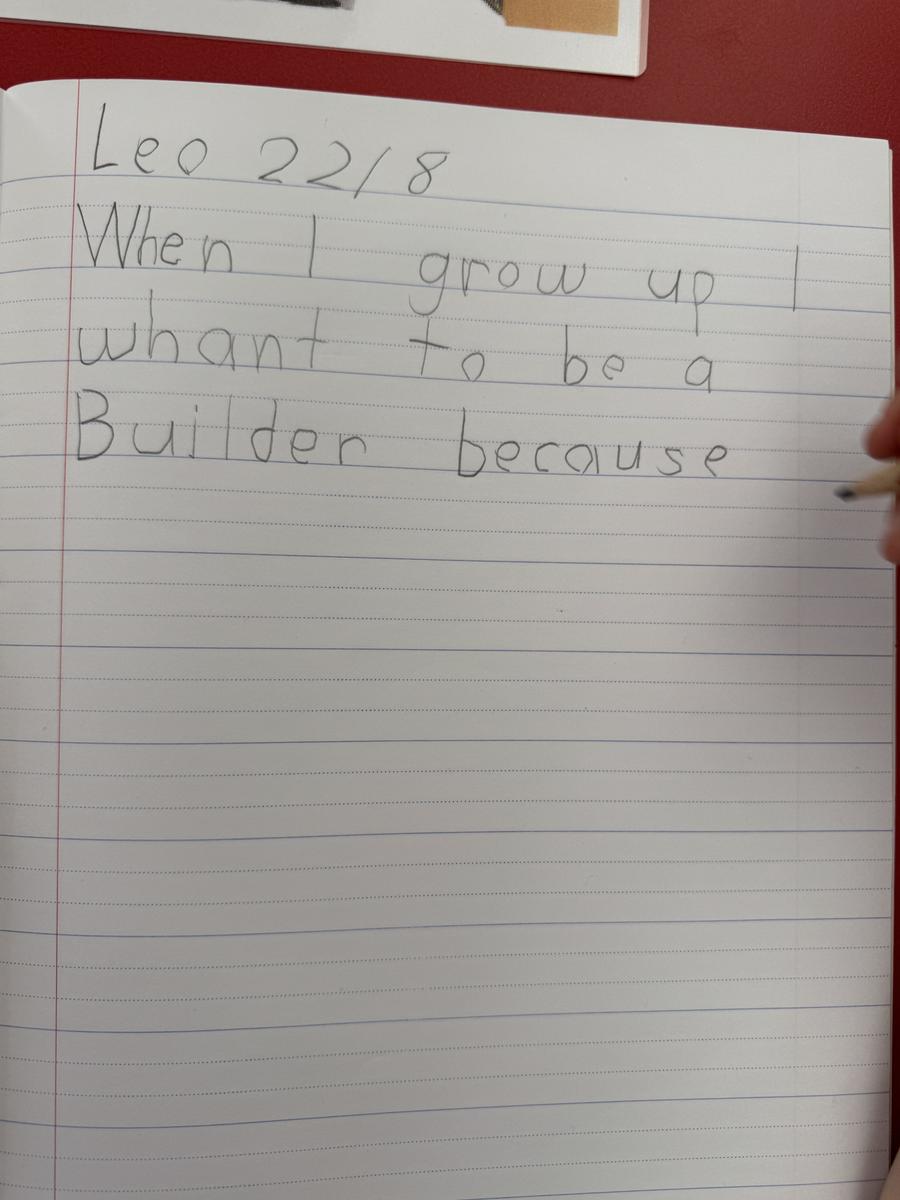 Leo 22/8
When I grow up I
whant to be a
Builder because